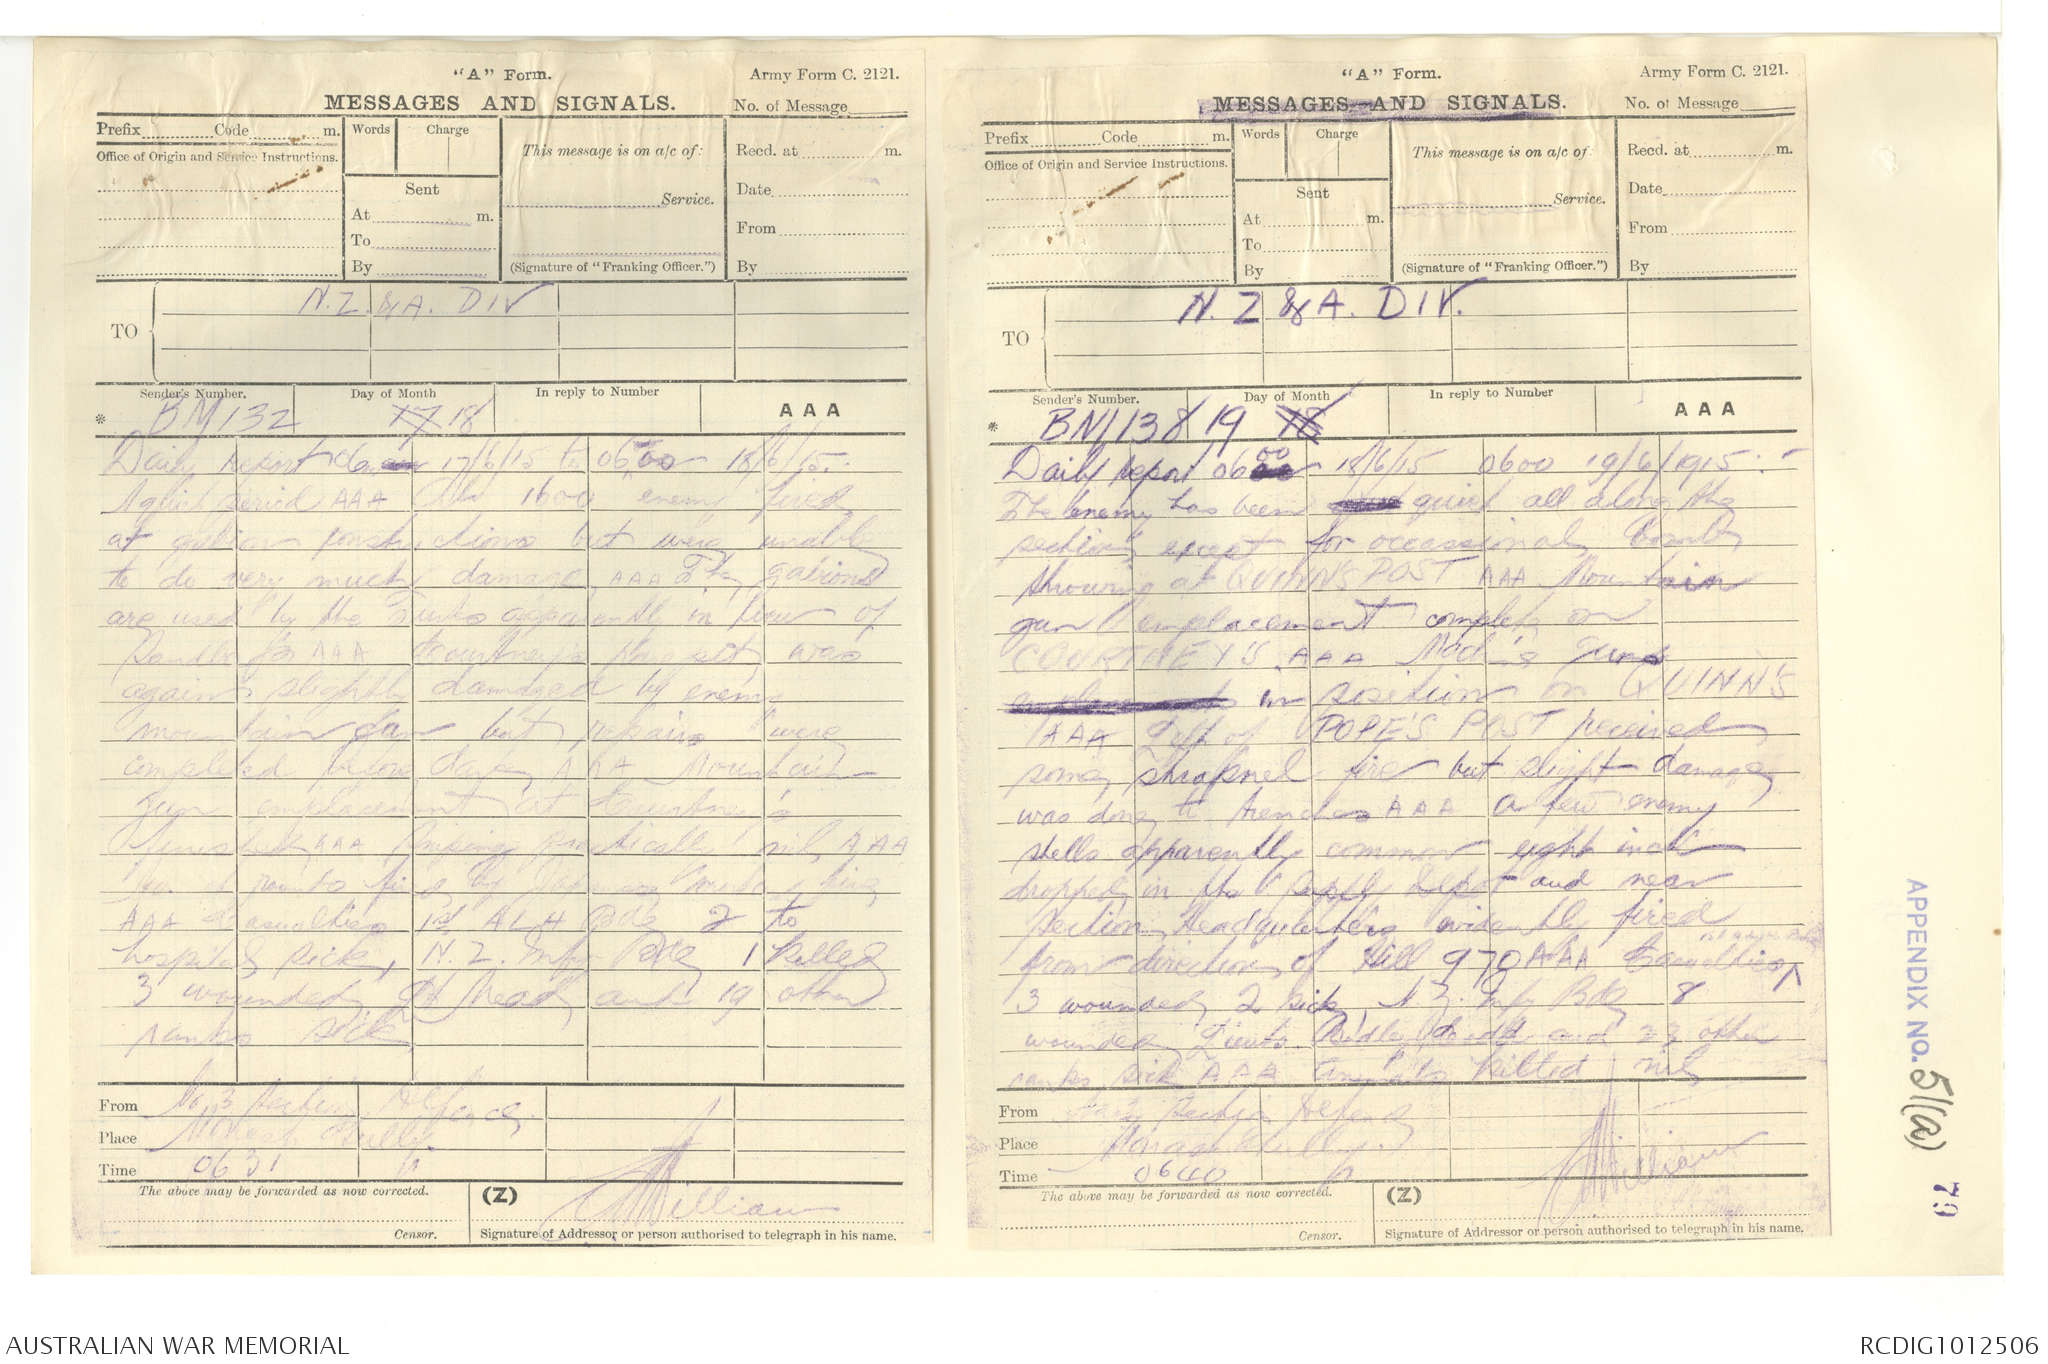 "A" Form.
Army Form C. 2121.
MESSAGES AND SIGNALS.
No. of Message
Prefix Code m.
Words Charge
This message is on a/c of:
Recd. at m.
Office of Origin and Service Instructions.
Sent
Date
Service.
At m.
From
To
By
(Signature of "Franking Officer.")
By
TO
N.Z. & A. DIV
Sender's Number.
Day of Month
In reply to Number
AAA
* BM132 17 18
Daily report 17/6/15 to 0600 18/6/15:-
A quiet period AAA At 1600 enemy fired
at gabion constructions but were unable
to do very much damage AAA The gabions
are used by the Turks apparently in lieu of
AAA Courtney's was
again slightly damaged by enemy
mountain gun but repairs were
completed before AAA Mountain
gun emplacement at Courtney's
finished AAA Sniping practically nil AAA
No. of rounds fired by Japanese mortar
AAA Casualties 1st ALH Bde 2 to
hospital sick, N.Z. Infy Bde 1 killed
3 wounded and 19 other
ranks sick
From No 3 Section Defence
Place Monash Gully
Time 0631
The above may be forwarded as now corrected.
(Z)
Williams
Censor.
Signature of Addressor or person authorised to telegraph in his name.
"A" Form.
Army Form C. 2121.
MESSAGES AND SIGNALS.
No. of Message
Prefix Code m.
Words Charge
This message is on a/c of:
Recd. at m.
Office of Origin and Service Instructions.
Sent
Date
Service.
At m.
From
To
By
(Signature of "Franking Officer.")
By
TO
N.Z & A. DIV.
Sender's Number.
Day of Month
In reply to Number
AAA
* BM138 19 18
Daily report 0600 18/6/15 0600 19/6/1915:-
The enemy has been quiet all along the
section except for occassional bomb
throwing at QUINN'S POST AAA Mountain
gun emplacement complete on
COURTNEY'S AAA guns
in position on QUINN'S
AAA Left of POPE'S POST received
some shrapnel fire but slight damage
was done to trenches AAA A few enemy
shells apparently common eight inch
dropped in the Supply Depot and near
Section Headquarters evidently fired
from direction of Hill 970 AAA Casualties
3 wounded 2 sick, N.Z. Infy Bde 8
wounded Lieuts and 23 other
ranks sick AAA killed nil
From No 3 Section Defence
Place Monash Gully
Time 0640
The above may be forwarded as now corrected.
(Z)
Williams
Censor.
Signature of Addressor or person authorised to telegraph in his name.
APPENDIX NO. 51(a)
79
AUSTRALIAN WAR MEMORIAL
RCDIG1012506